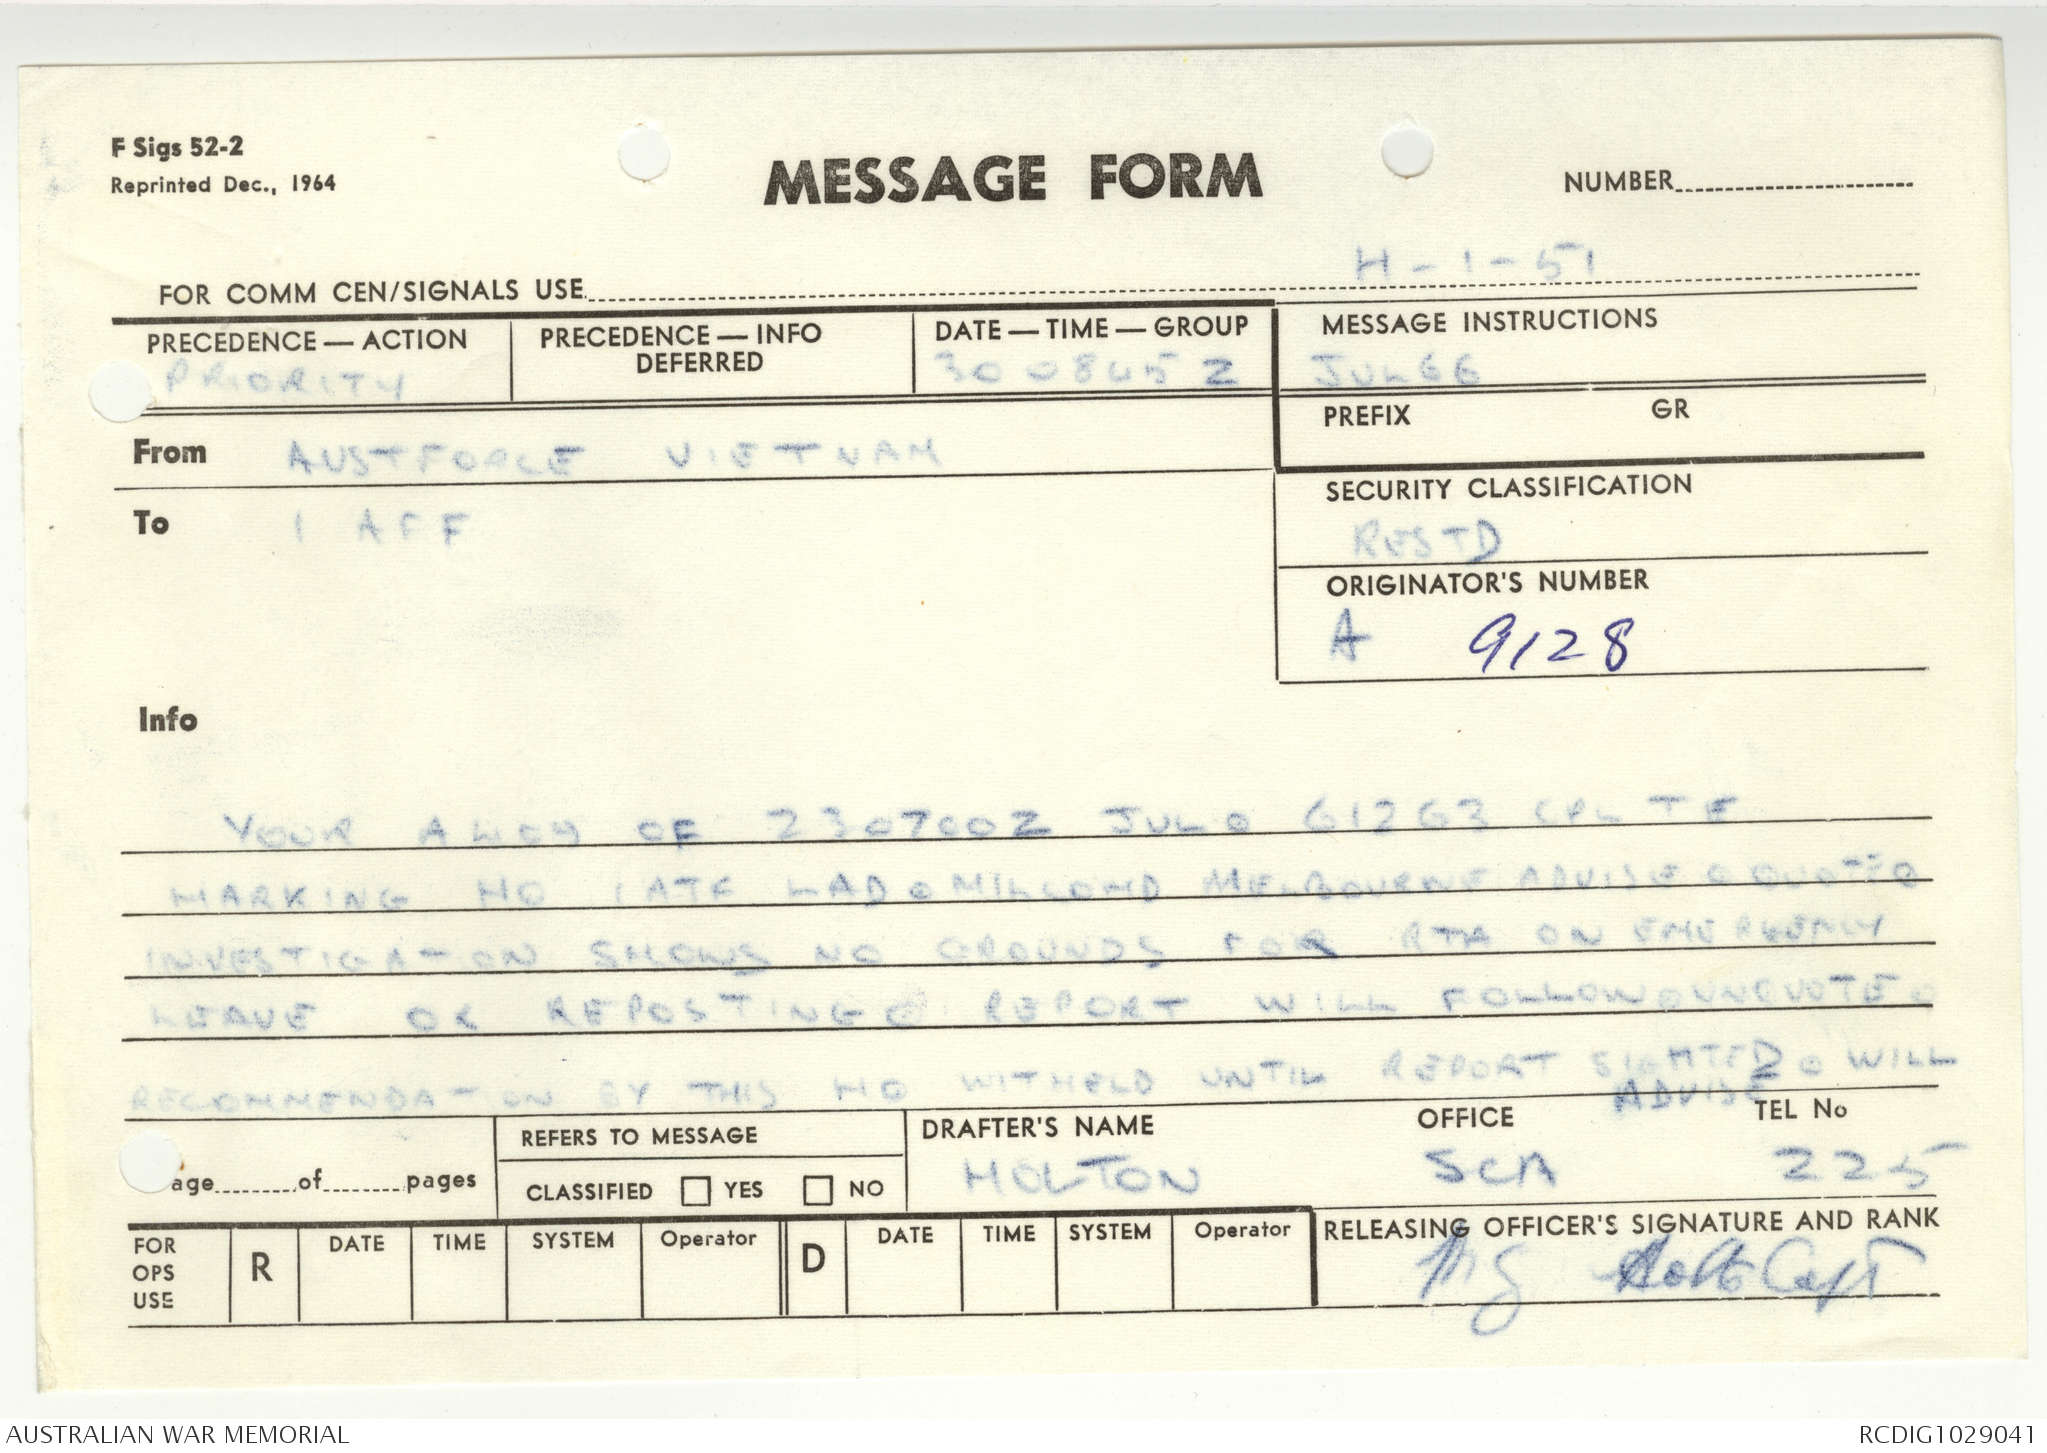 F Sigs 52-2
Reprinted Dec., 1964
MESSAGE FORM
NUMBER
H-1-51
FOR COMM CEN/SIGNALS USE
PRECEDENCE — ACTION
PRIORITY
PRECEDENCE — INFO
DEFERRED
DATE — TIME — GROUP
300845Z
MESSAGE INSTRUCTIONS
JUL 66
PREFIX GR
From AUSTFORCE VIETNAM
To 1 AFF
SECURITY CLASSIFICATION
RESTD
ORIGINATOR'S NUMBER
A 9128
Info
YOUR OF 230700Z JUL 0 61263 CPL T E
MARKING HQ 1 ATF LAD 0 MILCOMD MELBOURNE ADVISE 0 QUOTE 0
INVESTIGATION SHOWS NO GROUNDS FOR RTA ON EMERGENCY
LEAVE OR REPOSTING 0 REPORT WILL FOLLOW 0 UNQUOTE 0
RECOMMENDATION BY THIS HQ WITHELD UNTIL REPORT SIGHTED 0 WILL
ADVISE
age of pages
REFERS TO MESSAGE
CLASSIFIED YES NO
DRAFTER'S NAME
HOLTON
OFFICE
SCA
TEL No
225
FOR OPS USE
R DATE TIME SYSTEM Operator
D DATE TIME SYSTEM Operator
RELEASING OFFICER'S SIGNATURE AND RANK
Capt
AUSTRALIAN WAR MEMORIAL
RCDIG1029041